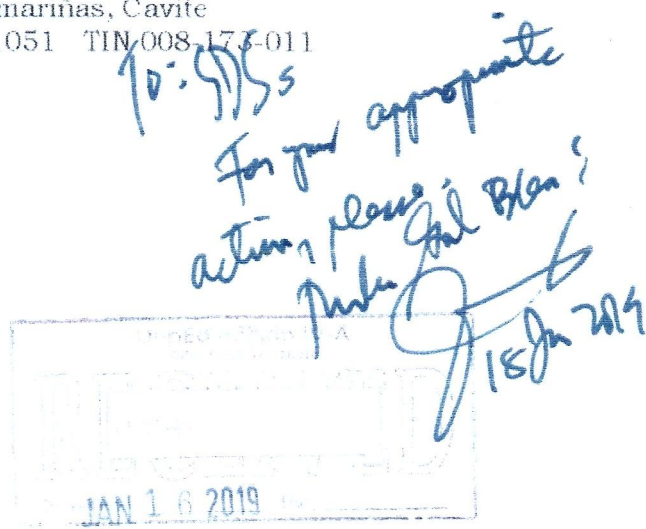 mariñas, Cavite
051 TIN 008-173-011
To: SDSs
For your appropriate
action, please.
God Bless!
18 Jan 2019
DepEd IV-A
RECEIVED
JAN 16 2019